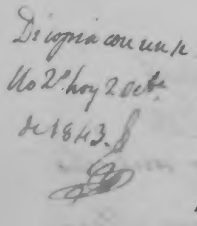 Di copia con un se
llo 2º hoy 2 octe
de 1843.